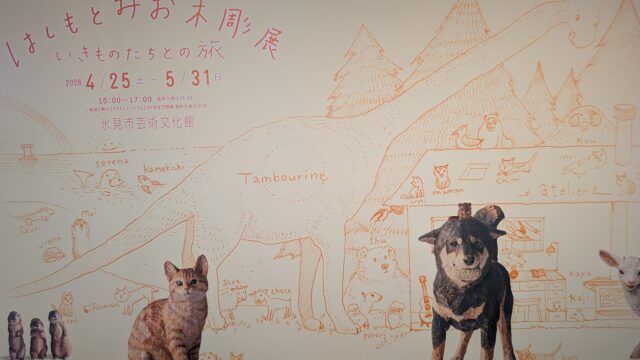 はしもとみお木彫展
いきものたちとの旅
2026 4/25土－5/31日
10:00〜17:00
氷見市芸術文化館
serena
kamekichi
Tambourine
uni
maman
chimi
atelier
sora
choco
shu
kaya
kai